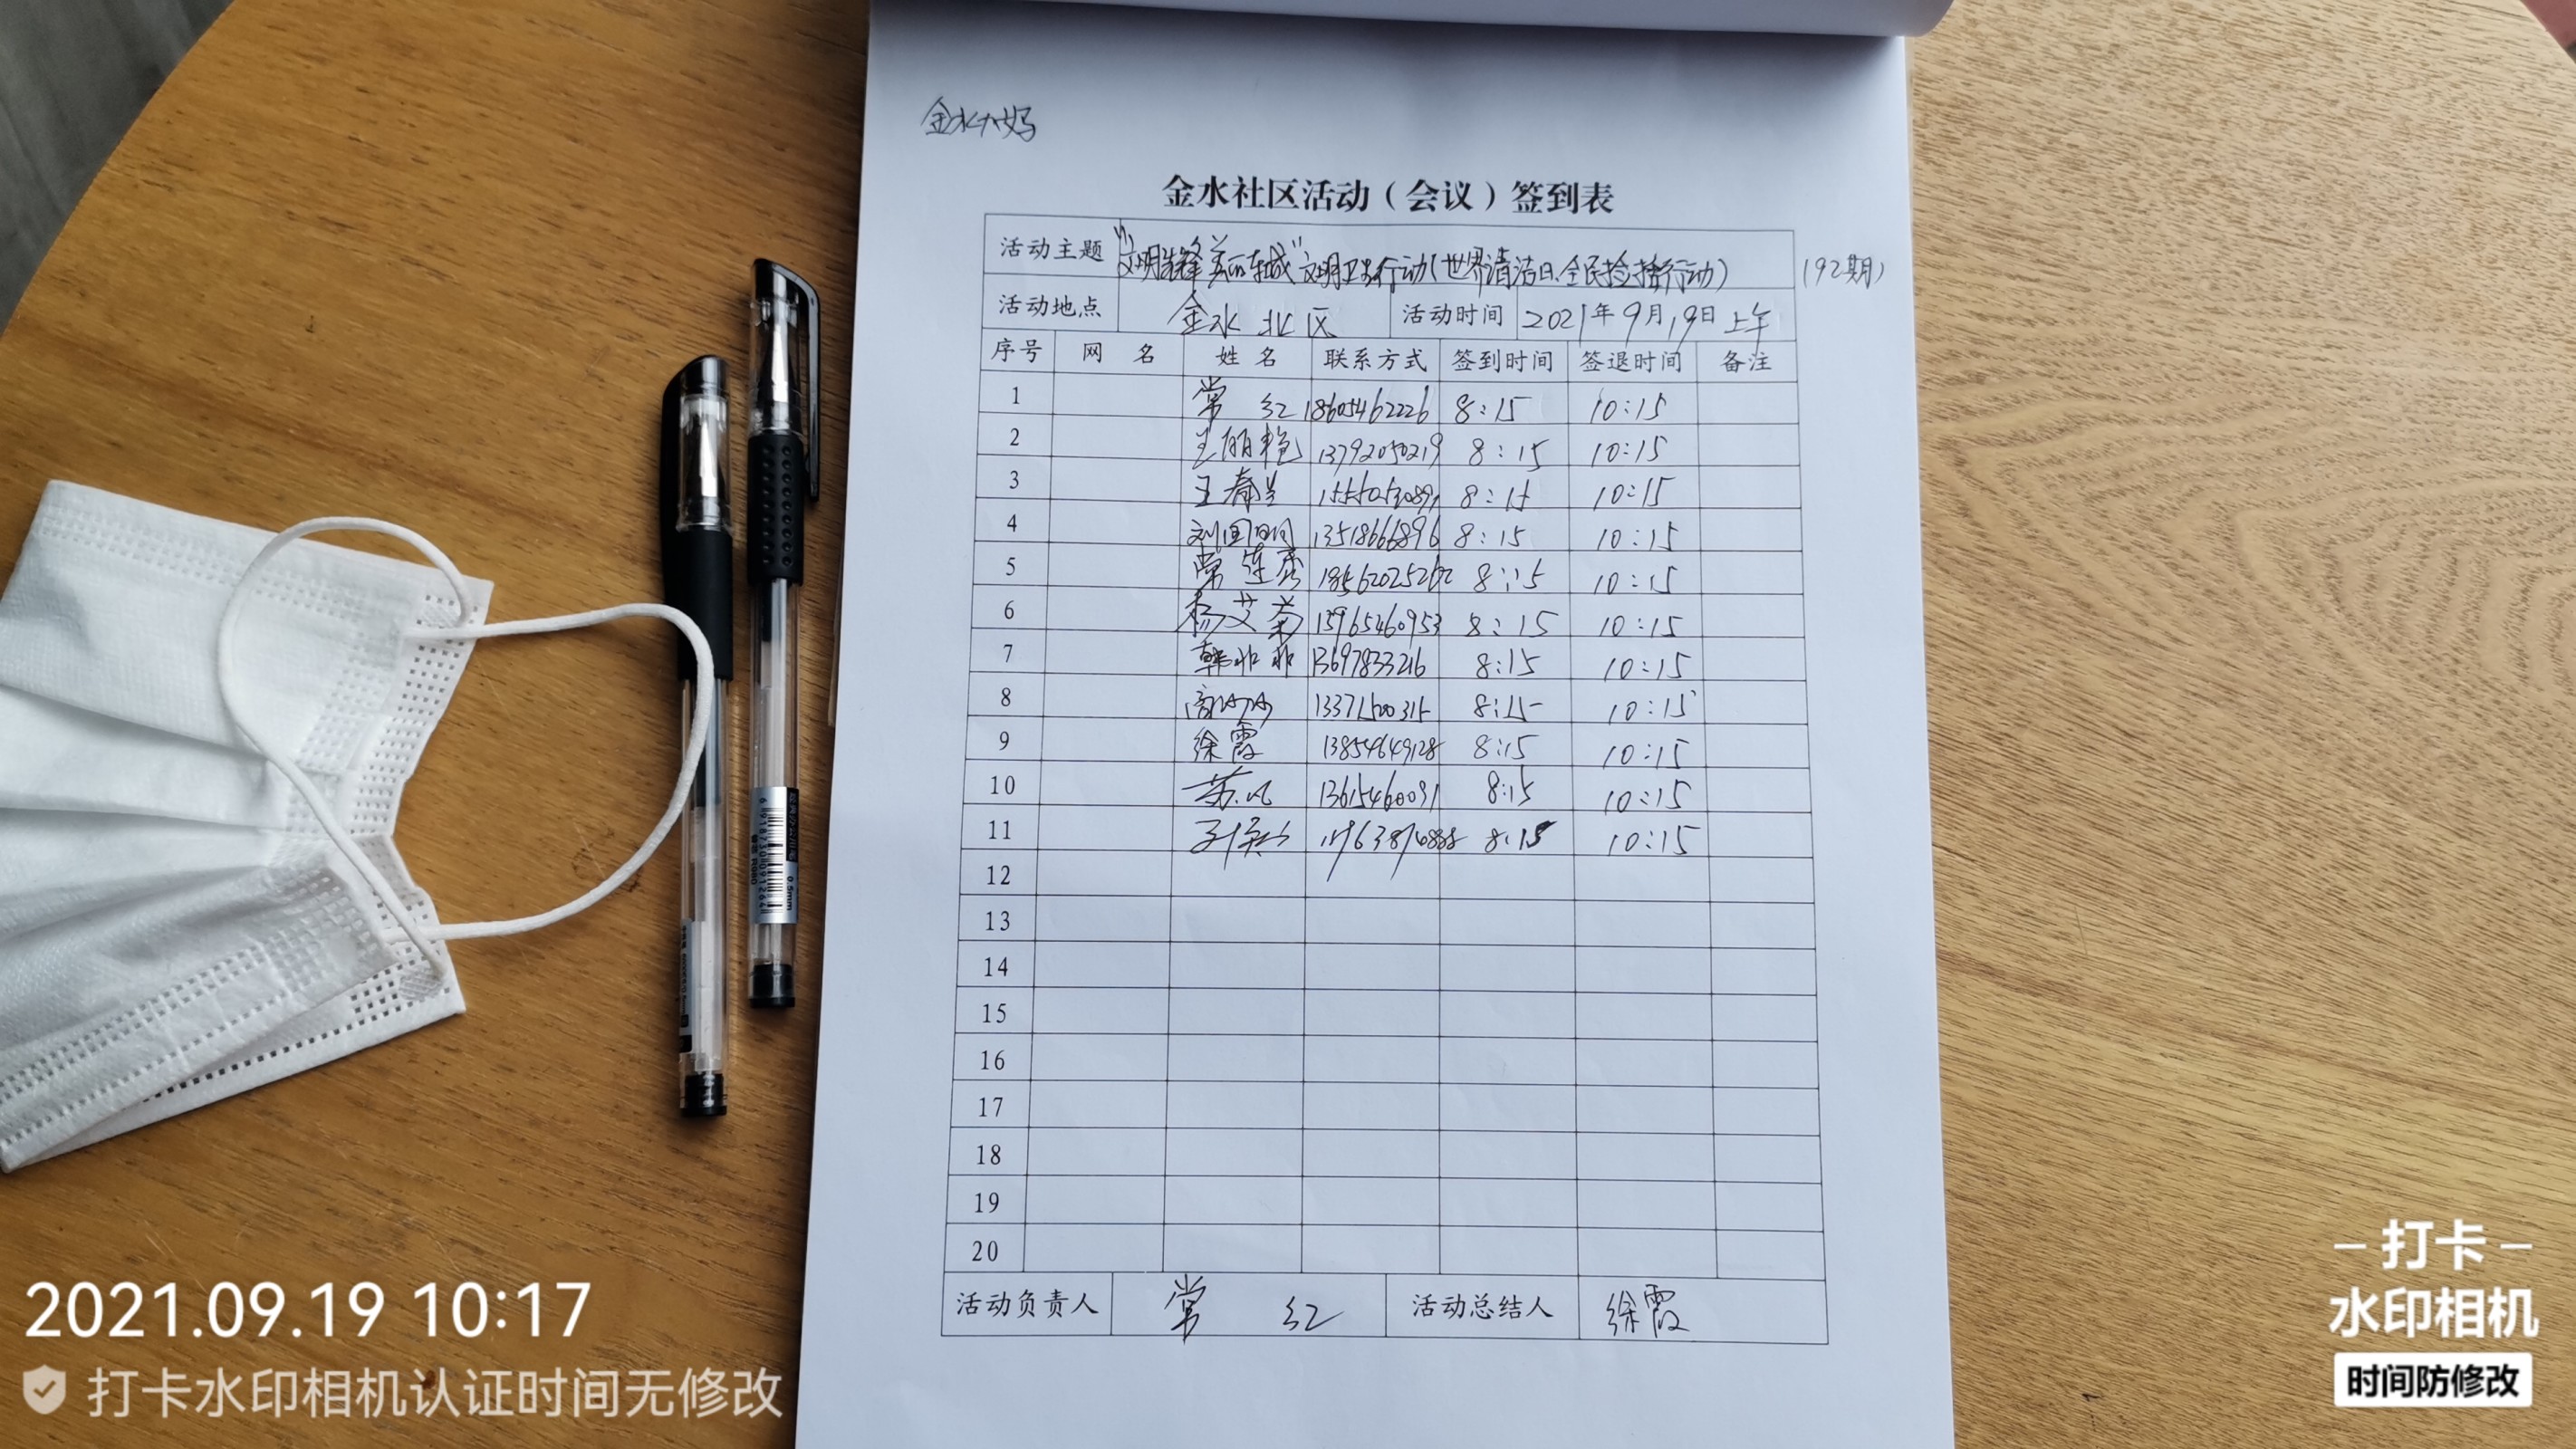 金水大妈
金水社区活动（会议）签到表
活动主题 "文明先锋 美丽东城"文明卫生行动(世界清洁日.全民捡拾行动) (92期)
活动地点 金水北区 活动时间 2021年9月19日上午
序号 网名 姓名 联系方式 签到时间 签退时间 备注
1 常红 18605462226 8:15 10:15
2 王丽艳 13792050219 8:15 10:15
3 王春兰 8:15 10:15
4 13518666896 8:15 10:15
5 常莲秀 8:15 10:15
6 杨艾菊 15965460953 8:15 10:15
7 韩非非 13697833216 8:15 10:15
8 高沙沙 13371500315 8:15 10:15
9 徐霞 13854649128 8:15 10:15
10 13615460091 8:15 10:15
11 8:15 10:15
12
13
14
15
16
17
18
19
20
活动负责人 常红 活动总结人 徐霞
2021.09.19 10:17
打卡水印相机认证时间无修改
打卡
水印相机
时间防修改